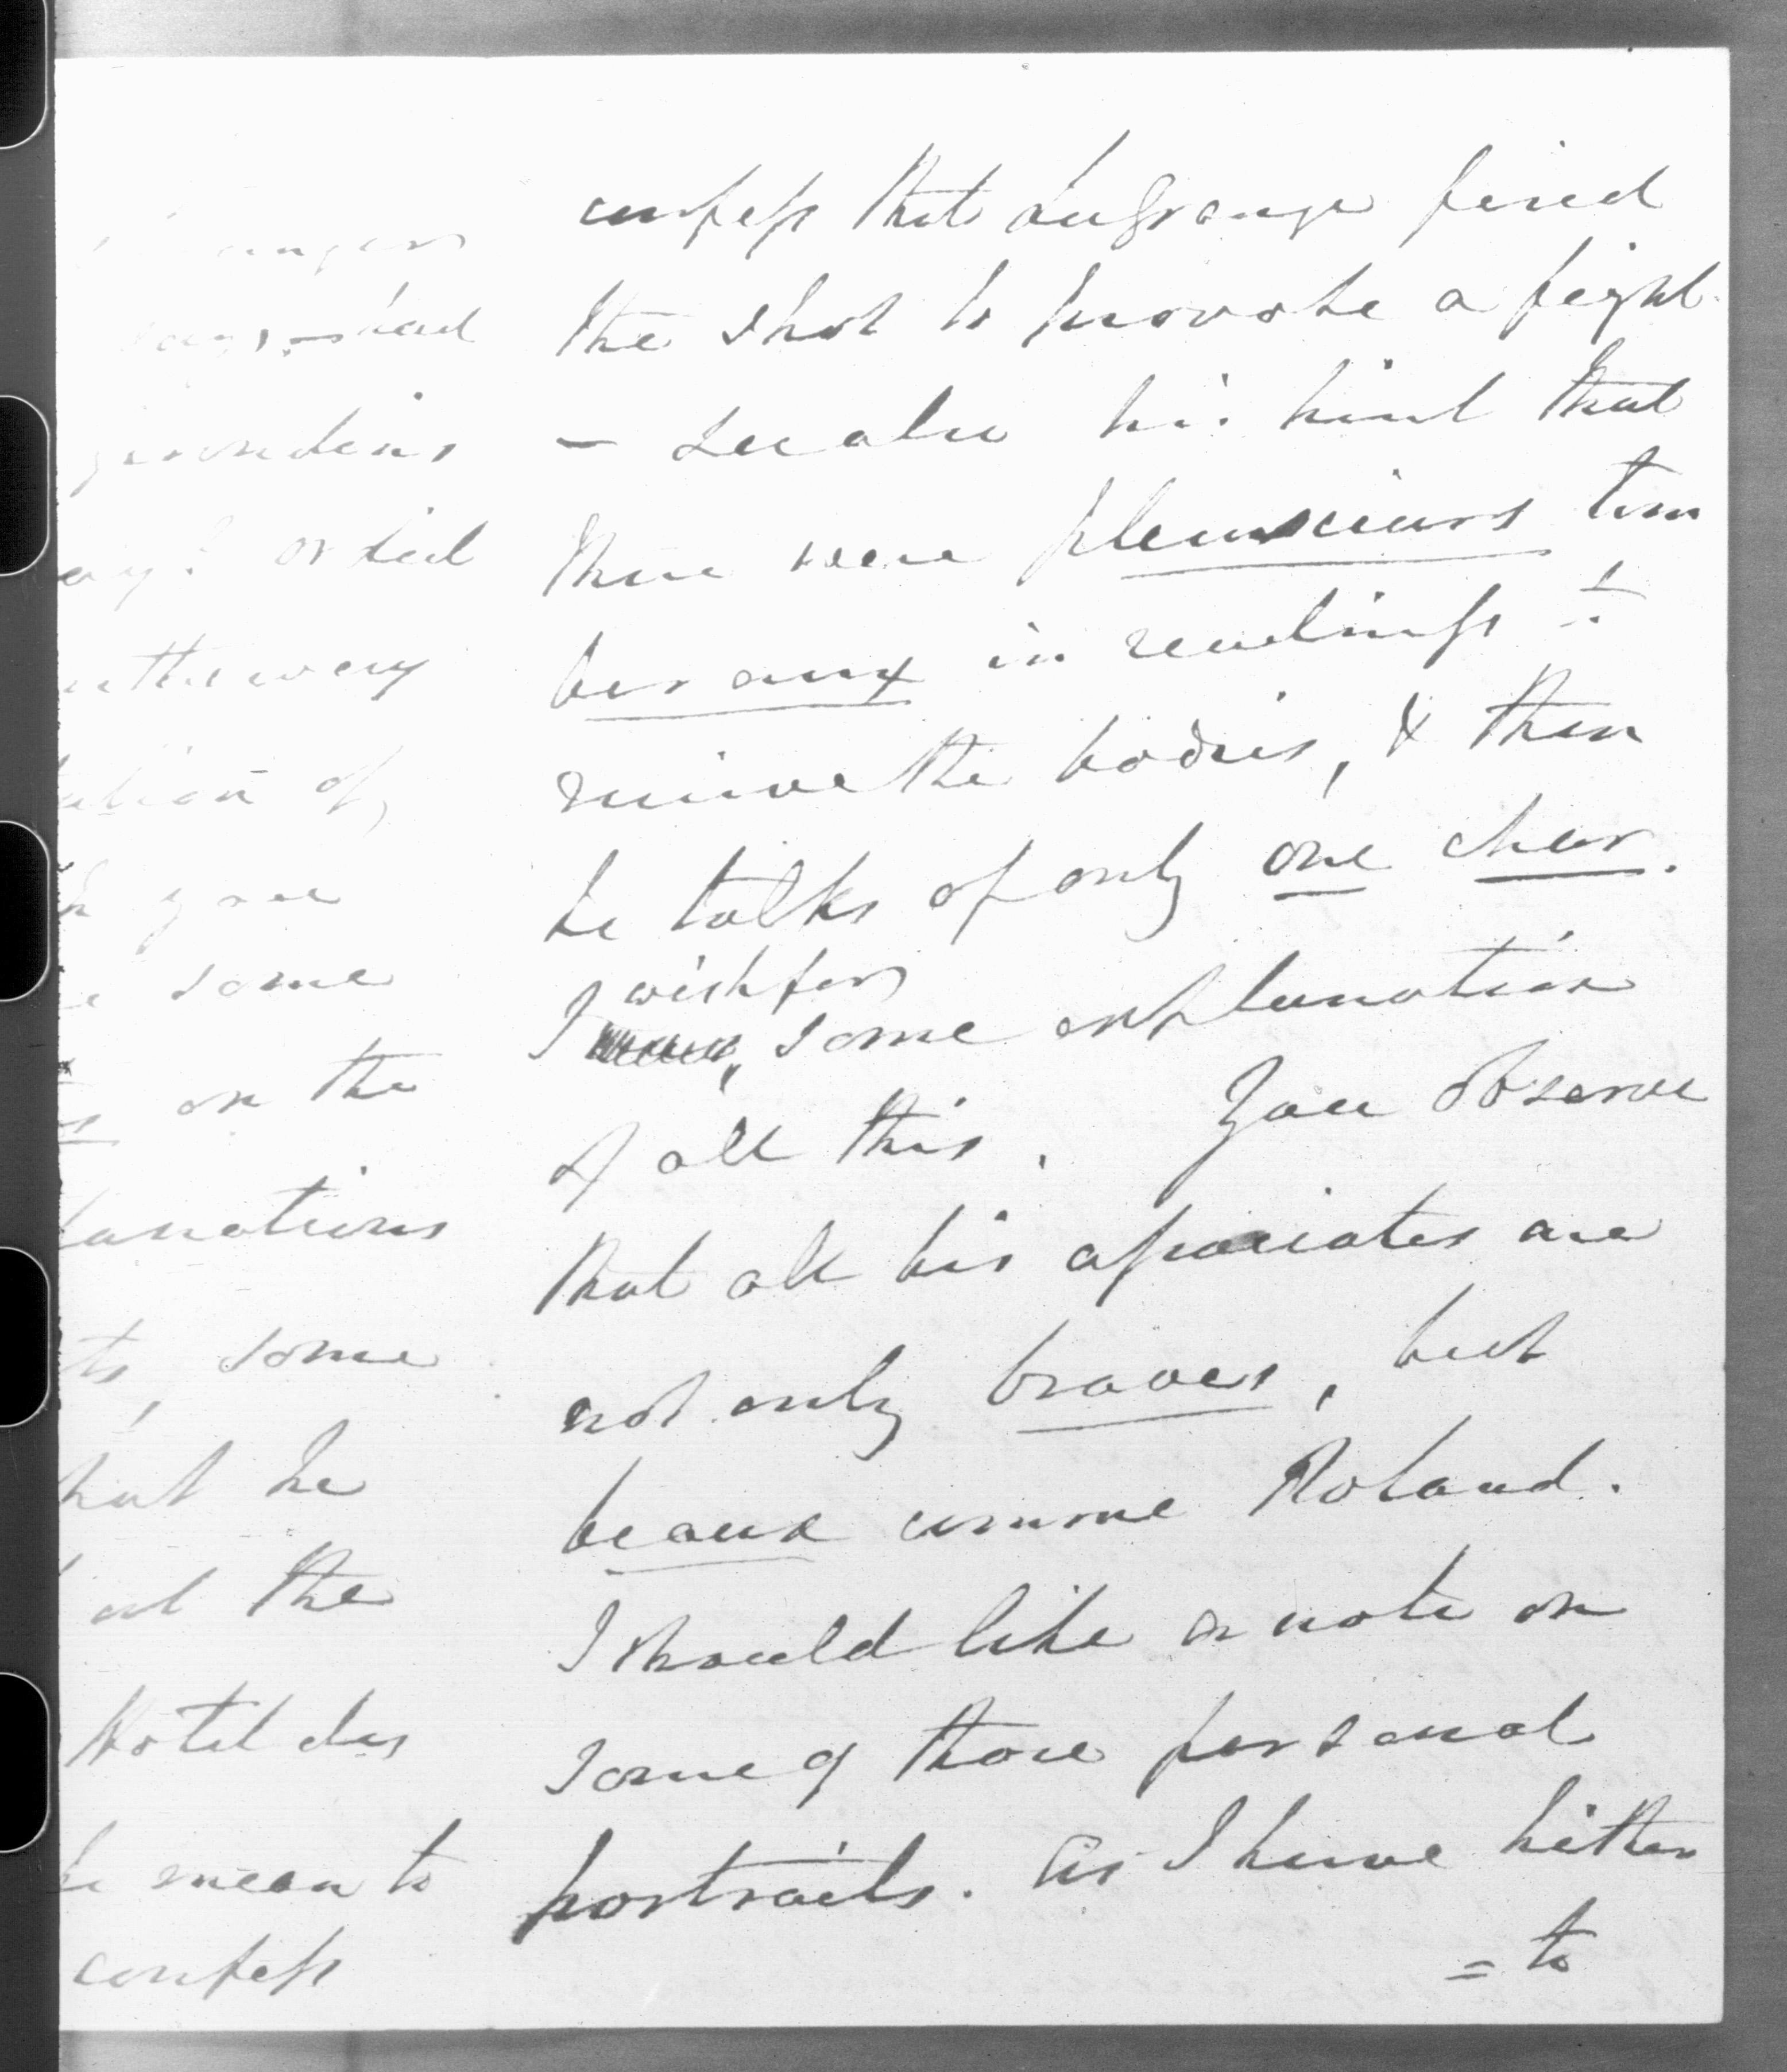 had
or did
other way
of
you
some
on the
some
he
at the
Hotel des
he mean to
confess
confess that Lagrange fired
the shot to provoke a fight
- See also his hint that
there were plusieurs tom
bereaux in readiness to
remove the bodies, & then
he talks of only one char.
I wish for some explanation
of all this. You observe
that all his associates are
not only braves, but
beaux comme Roland.
I should like a note on
some of those personal
portraits. As I have hither
= to